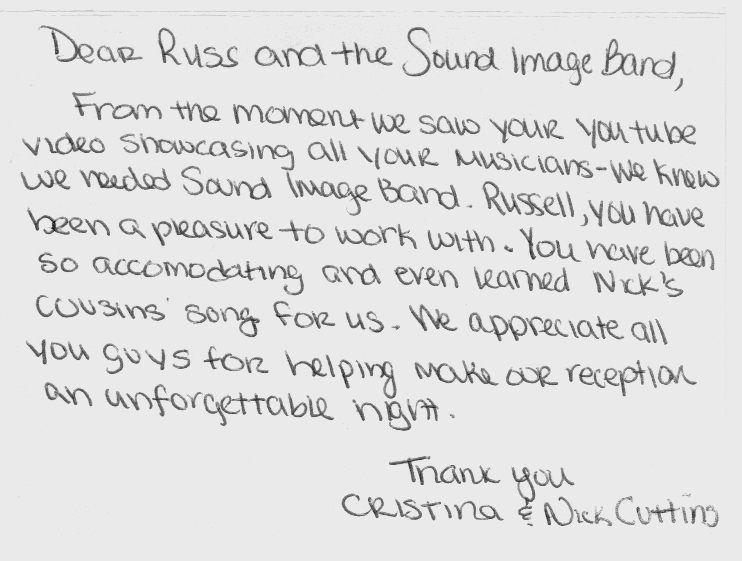 Dear Russ and the Sound Image Band,
From the moment we saw your youtube
video showcasing all your musicians - we knew
we needed Sound Image Band. Russell, you have
been a pleasure to work with. You have been
so accomodating and even learned Nick's
cousins' song for us. We appreciate all
you guys for helping make our reception
an unforgettable night.
Thank you
Cristina & Nick Cutting